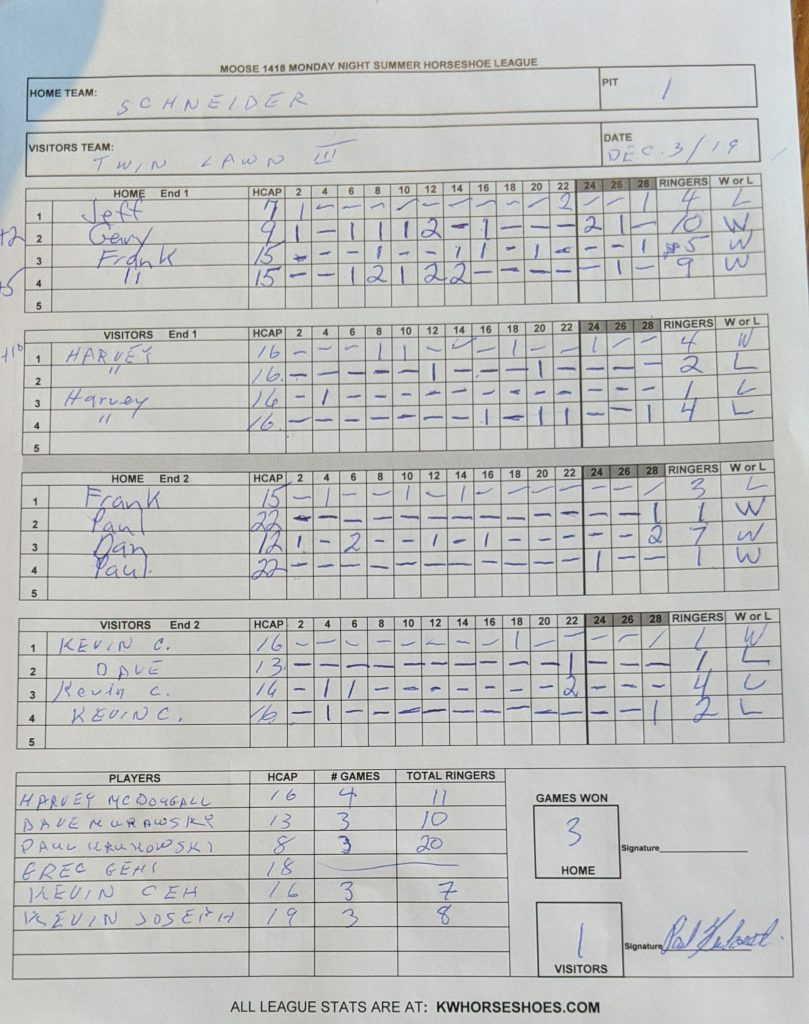 MOOSE 1418 MONDAY NIGHT SUMMER HORSESHOE LEAGUE
HOME TEAM: SCHNEIDER PIT 1
VISITORS TEAM: TWIN LAWN III DATE DEC. 3/19
HOME End 1 HCAP 2 4 6 8 10 12 14 16 18 20 22 24 26 28 RINGERS W or L
1 Jeff 7 1 - - - - - - - - - 2 - - 1 4 L
2 Gary 9 1 - 1 1 1 2 - 1 - - - 2 1 - 10 W
3 Frank 15 - - - 1 - - 1 1 - 1 - - - 1 5 W
4 " 15 - - 1 2 1 2 2 - - - - - 1 - 9 W
5
VISITORS End 1 HCAP 2 4 6 8 10 12 14 16 18 20 22 24 26 28 RINGERS W or L
1 HARVEY 16 - - - 1 1 - - - 1 - - 1 - - 4 W
2 " 16. - - - - - 1 - - - 1 - - - - 2 L
3 Harvey 16 - 1 - - - - - - - - - - - - 1 L
4 " 16. - - - - - - - 1 - 1 1 - - 1 4 L
5
HOME End 2 HCAP 2 4 6 8 10 12 14 16 18 20 22 24 26 28 RINGERS W or L
1 Frank 15 - 1 - - 1 - 1 - - - - - - - 3 L
2 Paul 22 - - - - - - - - - - - - - 1 1 W
3 Dan 12 1 - 2 - - 1 - 1 - - - - - 2 7 W
4 Paul. 22 - - - - - - - - - - - 1 - - 1 W
5
VISITORS End 2 HCAP 2 4 6 8 10 12 14 16 18 20 22 24 26 28 RINGERS W or L
1 KEVIN C. 16 - - - - - - - - 1 - - - - - 1 W
2 DAVE 13 - - - - - - - - - - 1 - - - 1 L
3 Kevin C. 16 - 1 1 - - - - - - - 2 - - - 4 L
4 KEVIN C. 16 - 1 - - - - - - - - - - - 1 2 L
5
PLAYERS HCAP # GAMES TOTAL RINGERS
HARVEY MCDOUGALL 16 4 11
DAVE MURAWSKY 13 3 10
PAUL 8 3 20
GREG GEHL 18
KEVIN CEH 16 3 7
KEVIN JOSEPH 19 3 8
GAMES WON
3
HOME
Signature
1
VISITORS
Signature
ALL LEAGUE STATS ARE AT: KWHORSESHOES.COM